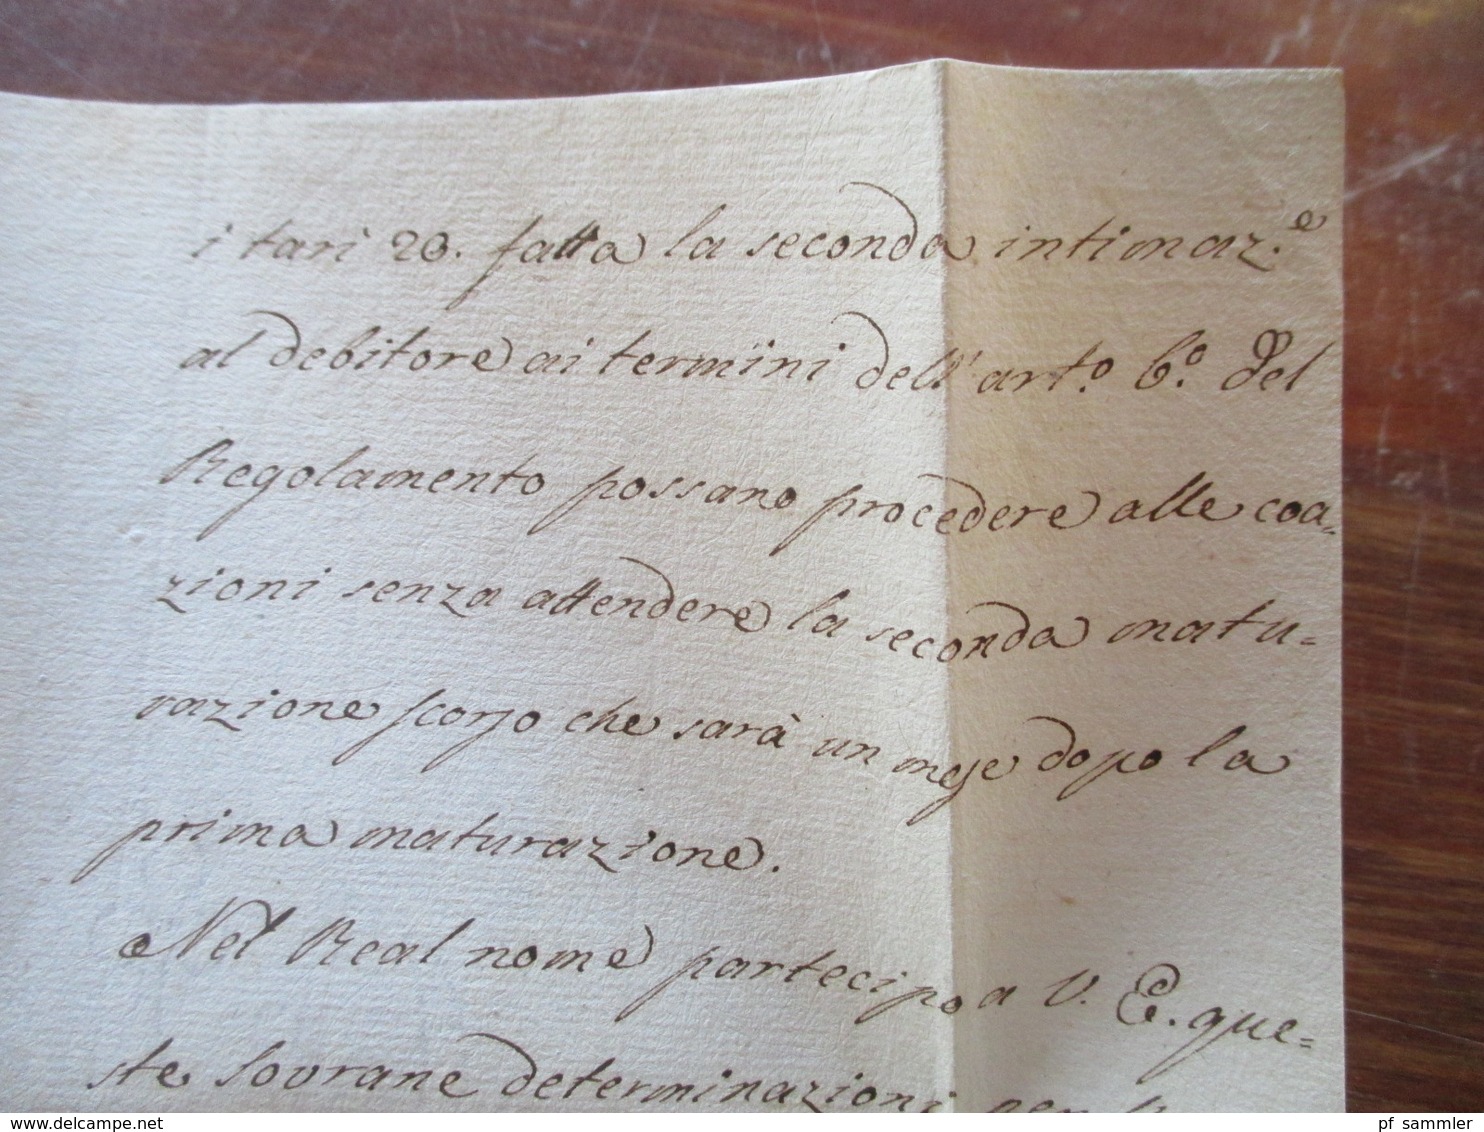 i tarì 20. fatta la seconda intimaz.e
al debitore ai termini dell' arto. 6o. del
Regolamento possano procedere alle coa-
zioni senza attendere la seconda matu-
razione scorso che sarà un mese dopo la
prima maturazione.
Nel Real nome partecipo a V. E. que-
ste Sovrane determinazioni
pf_sammler
www.delcampe.net